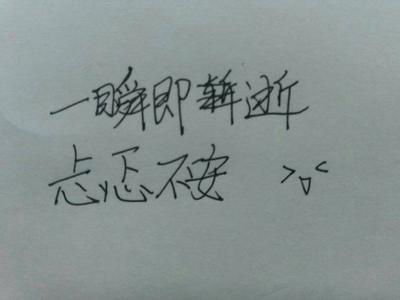 一瞬即逝
忐忑不安 >▽<